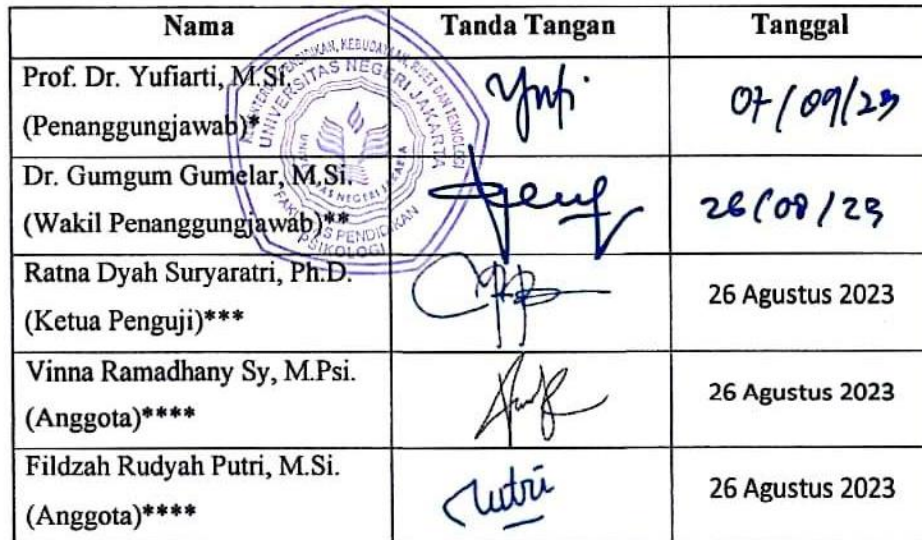 Nama Tanda Tangan Tanggal
Prof. Dr. Yufiarti, M.Si.
(Penanggungjawab)* Yufi 07/09/23
Dr. Gumgum Gumelar, M.Si.
(Wakil Penanggungjawab)** 26/08/23
Ratna Dyah Suryaratri, Ph.D.
(Ketua Penguji)*** 26 Agustus 2023
Vinna Ramadhany Sy, M.Psi.
(Anggota)**** 26 Agustus 2023
Fildzah Rudyah Putri, M.Si.
(Anggota)**** Putri 26 Agustus 2023
UNIVERSITAS NEGERI JAKARTA
PSIKOLOGI